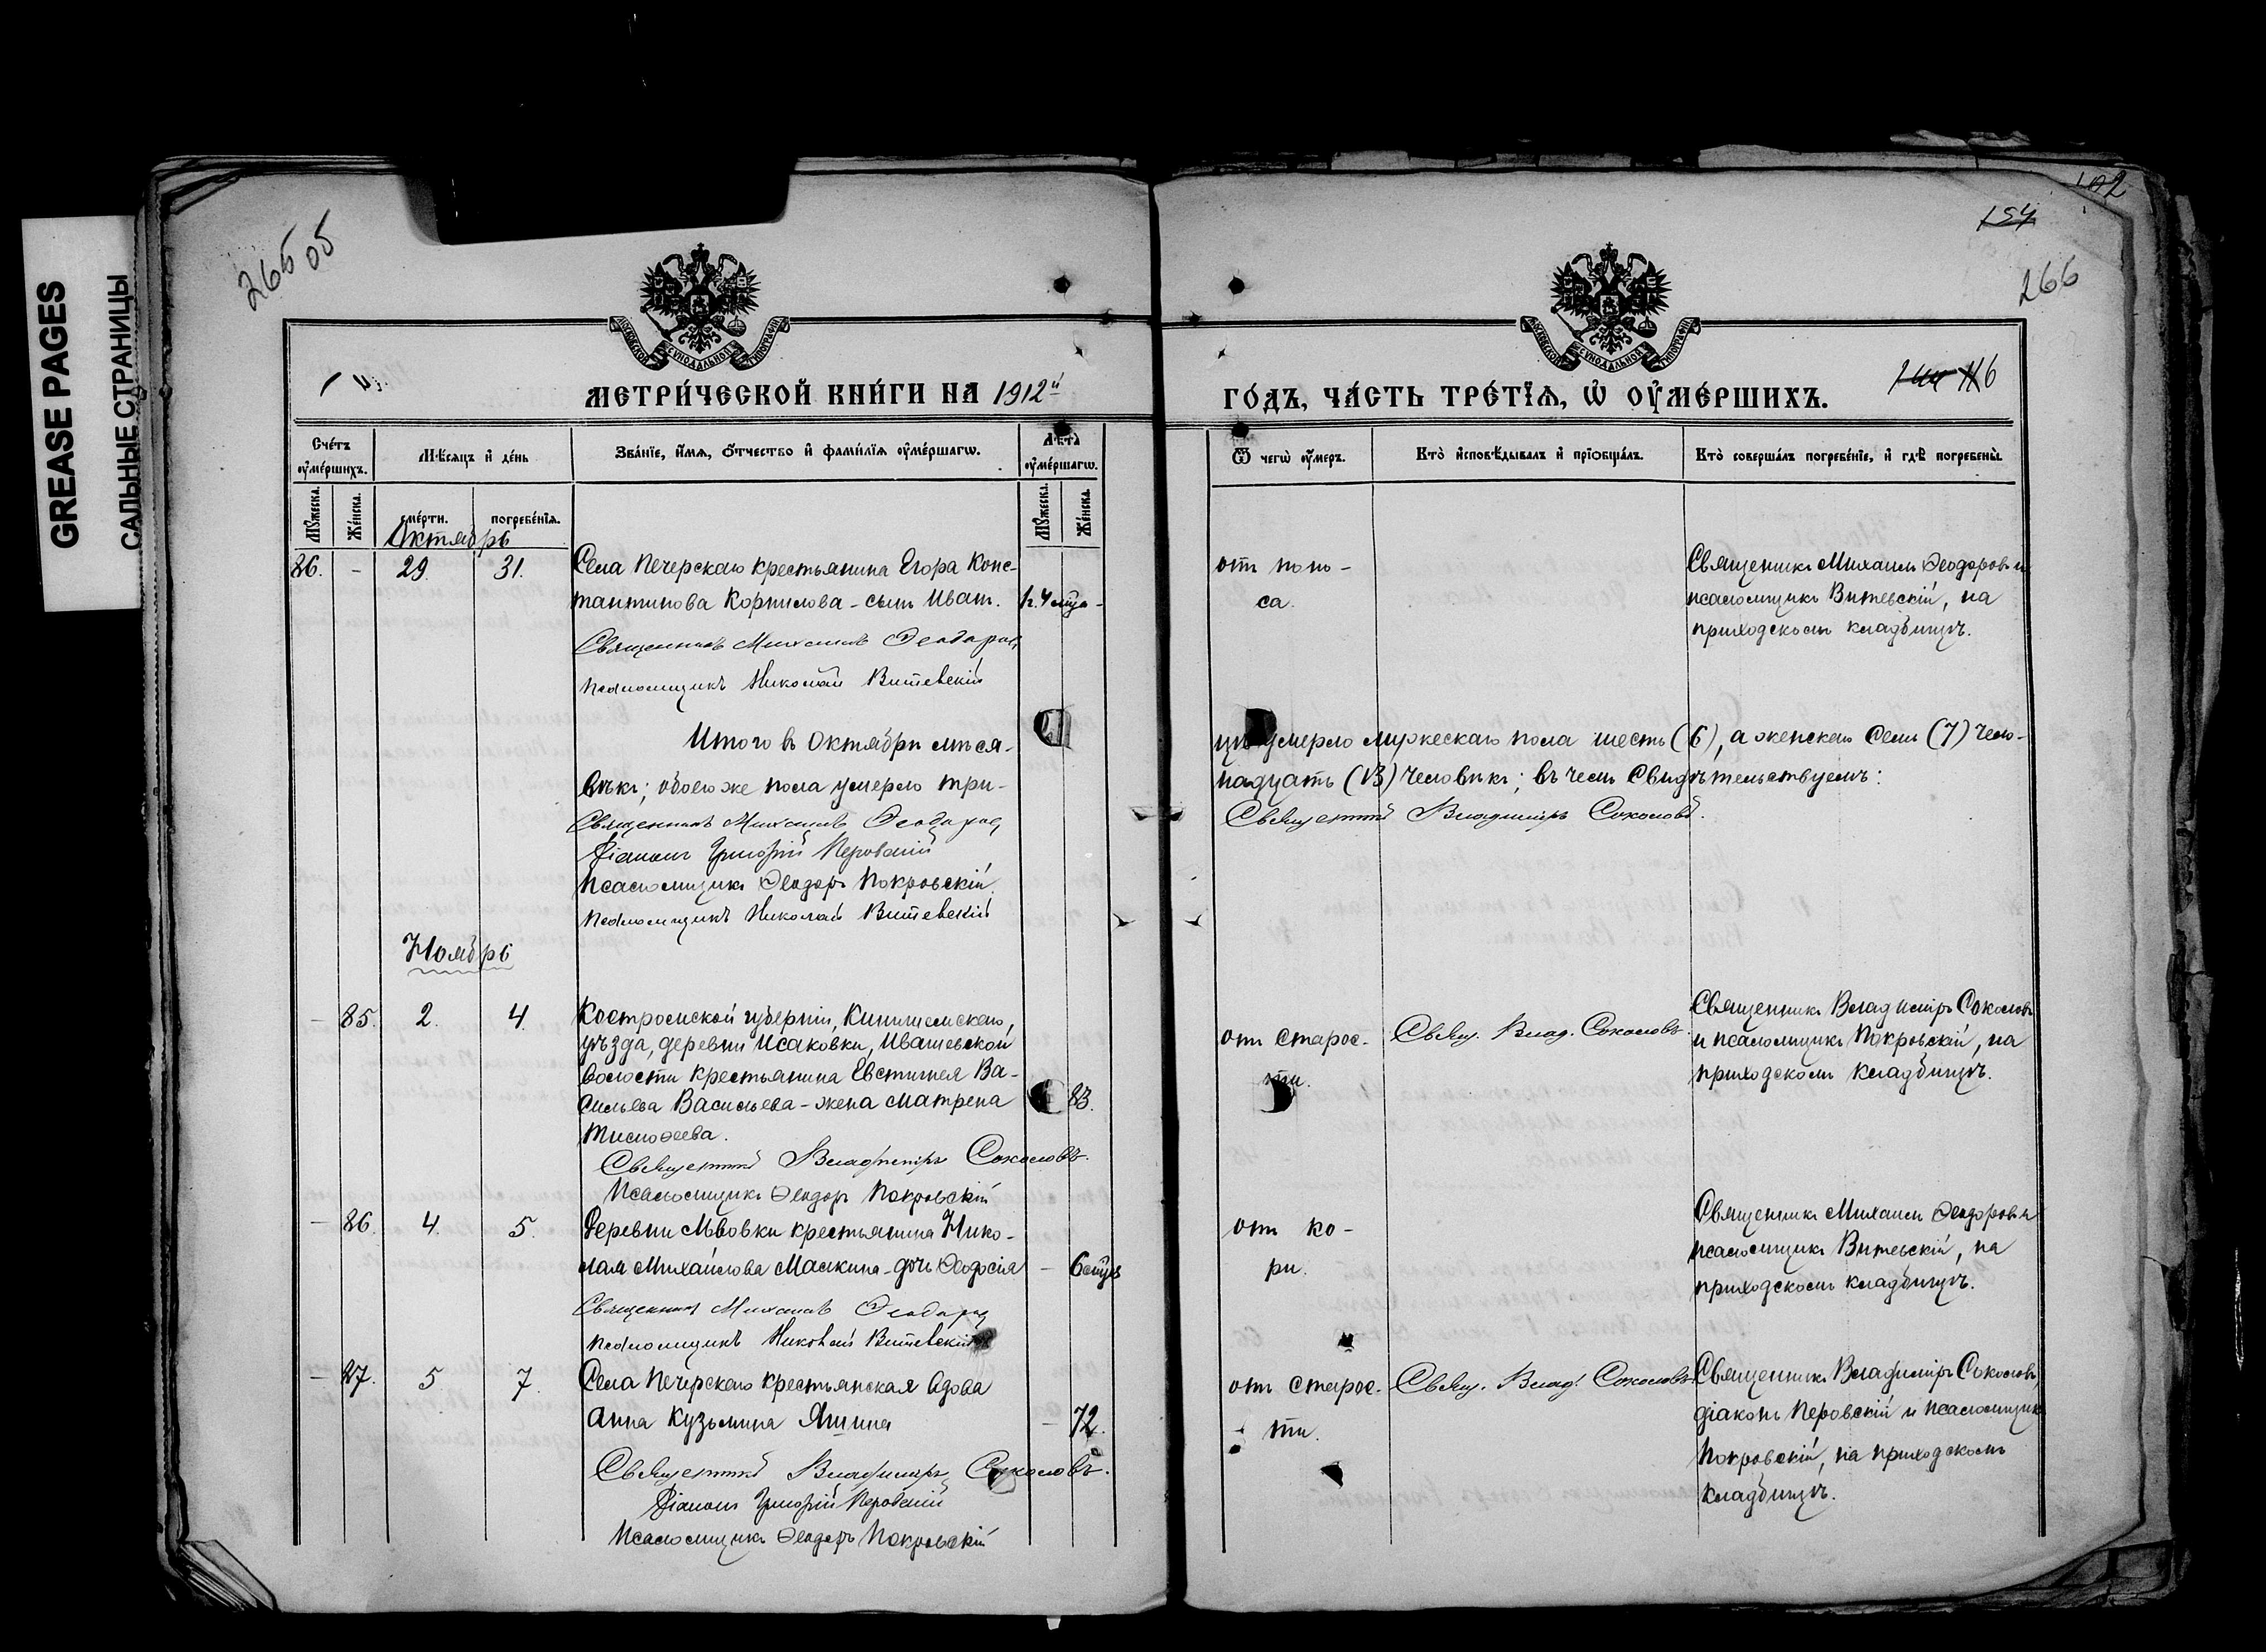 GREASE PAGES
САЛЬНЫЕ СТРАНИЦЫ
265 об
102
154
266
МОСКОВСКОЙ СУНОДАЛЬНОЙ ТИПОГРАФІИ
МОСКОВСКОЙ СУНОДАЛЬНОЙ ТИПОГРАФІИ
МЕТРИ́ЧЕСКОЙ КНИ́ГИ НА 1912й
ГО́ДЪ, ЧА́СТЬ ТРЕ́ТЇѦ, Ѡ҆ ОУ҆МЕ́РШИХЪ.
116
Сче́тъ оу҆ме́ршихъ.
Мѣ́сѧцъ и҆ де́нь
Зва́нїе, и҆́мѧ, ѻ҆́тчество и҆ фами́лїѧ оу҆ме́ршагѡ.
Лѣ́та оу҆ме́ршагѡ.
Ѿ чегѡ̀ оу҆́меръ.
Кто̀ и҆сповѣ́дывалъ и҆ прїѡбща́лъ.
Кто̀ соверша́лъ погребе́нїе, и҆ гдѣ̀ погребены̀.
Мꙋ́жеска. Же́нска. сме́рти. погребе́нїѧ. Мꙋ́жеска. Же́нска.
Октябрь
86. - 29. 31. Села Печерскаго крестьянина Егора Конс-
тантинова Корнилова - сынъ Иванъ.
Священникъ Михаилъ Ѳеодоровъ
Псаломщикъ Николай Витевскій
от поно-
са.
Священникъ Михаилъ Ѳеодоровъ и
псаломщикъ Витевскій, на
приходскомъ кладбищѣ.
Итого въ Октябрѣ мѣся-
цѣ умерло мужескаго пола шесть (6), а женскаго семь (7) чело-
вѣкъ; обоего же пола умерло три-
надцать (13) человѣкъ; въ чемъ свидѣтельствуемъ:
Священникъ Михаилъ Ѳеодоровъ
Священникъ Владиміръ Соколовъ.
Діаконъ Григорій Перовскій
Псаломщикъ Ѳеодоръ Покровскій.
Псаломщикъ Николай Витевскій
Ноябрь
- 85. 2. 4. Костромской губерніи, Кинешемскаго,
уѣзда, деревни Исаковки, Ивашевской
волости крестьянина Евстигнея Ва-
сильева Васильева - жена Матрена 83.
Тимоѳеева.
Священникъ Владиміръ Соколовъ.
Псаломщикъ Ѳеодоръ Покровскій
отъ старос-
ти.
Свящ. Влад. Соколовъ.
Священникъ Владиміръ Соколовъ
и псаломщикъ Покровскій, на
приходскомъ кладбищѣ.
- 86. 4. 5. Деревни Львовки крестьянина Нико-
лая Михайлова Маскина - дочь Ѳеодосія - 6 мѣця
Священникъ Михаилъ Ѳеодоровъ
Псаломщикъ Николай Витевскій
отъ ко-
ри.
Священникъ Михаилъ Ѳеодоровъ и
псаломщикъ Витевскій, на
приходскомъ кладбищѣ.
- 87. 5 7. Села Печерскаго крестьянская вдова
Анна Кузьмина Яшина - 72.
Священникъ Владиміръ Соколовъ.
Діаконъ Григорій Перовскій
Псаломщикъ Ѳеодоръ Покровскій
отъ старос-
ти.
Свящ. Влад. Соколовъ.
Священникъ Владиміръ Соколовъ,
діаконъ Перовскій и псаломщикъ
Покровскій, на приходскомъ
кладбищѣ.